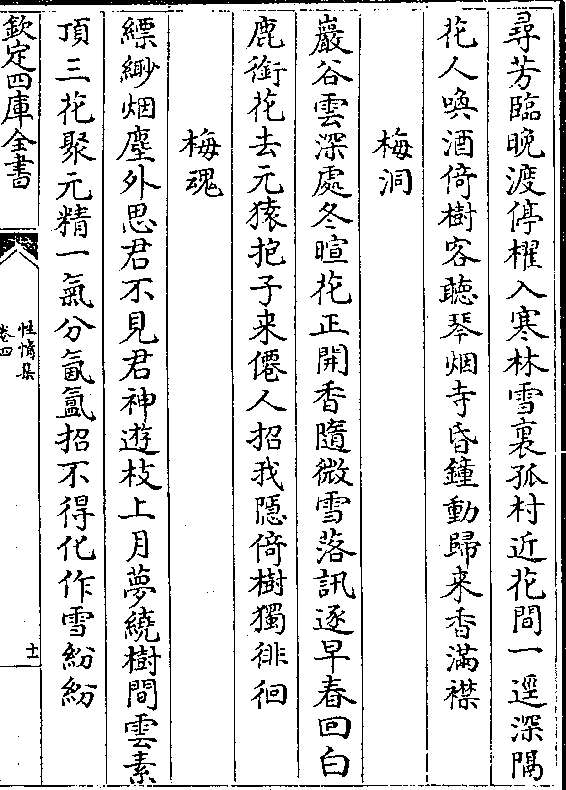 尋芳臨晚渡停櫂入寒林雪裏孤村近花間一逕深隔
花人喚酒倚樹客聽琴烟寺昏鐘動歸来香滿襟
梅洞
巖谷雲深處冬暄花正開香隨微雪落訊逐早春回白
鹿銜花去元猿抱子来僊人招我隱倚樹獨徘徊
梅魂
縹緲烟塵外思君不見君神遊枝上月夢繞樹間雲素
頂三花聚元精一氣分氤氳招不得化作雪紛紛
欽定四庫全書
性情集
卷四
十一